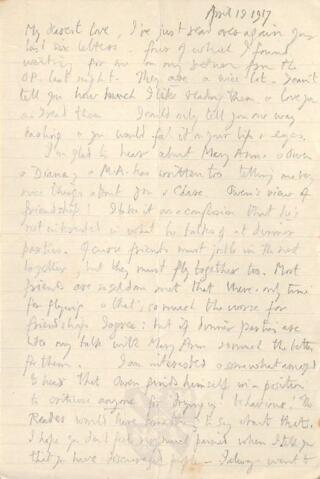 April 19 1917
My dearest love, I've just read over again your
last six letters — four of which I found
waiting for me on my return from the
O.P. last night. They are a nice lot. I can't
tell you how much I like reading them & love you
as I read them I could only tell you one way
& you would feel it on your lips & eyes.
I'm glad to hear about Mary Ann & Owen
& Diana; & M.A. has written too telling me
nice things about you & Chase. Owen's view of
friendship! I take it as a confession that he's
not interested in what he talks of at dinner
parties. Of course friends must jostle in the nest
together, but they must fly together too. Most
friends are so seldom met that there's only time
for flying & that's so much the worse for
friendship I agree: but if dinner parties are
like my talk with Mary Ann so much the better
for them. I am interested & somewhat amused
to hear that Owen finds himself in a position
to criticise anyone for behaviour! The
Reades would have something to say about that.
I hope you don't feel too much pained when I tell you
that you have discouraged people — I always want to